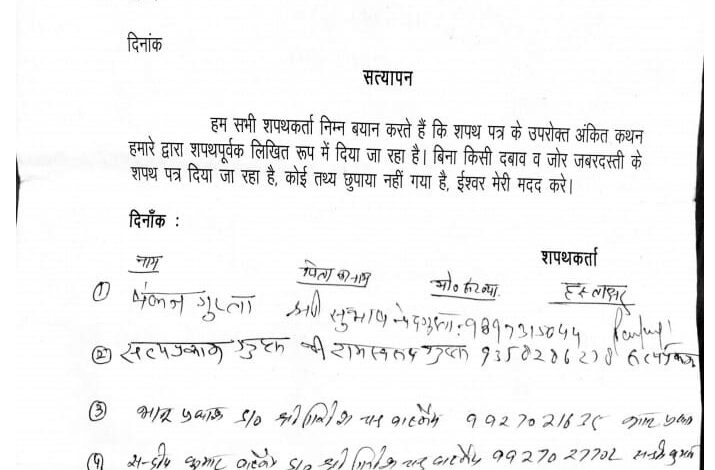 दिनांक
सत्यापन
हम सभी शपथकर्ता निम्न बयान करते हैं कि शपथ पत्र के उपरोक्त अंकित कथन
हमारे द्वारा शपथपूर्वक लिखित रूप में दिया जा रहा है। बिना किसी दबाव व जोर जबरदस्ती के
शपथ पत्र दिया जा रहा है, कोई तथ्य छुपाया नहीं गया है, ईश्वर मेरी मदद करे।
दिनाँक :
शपथकर्ता
नाम पिता का नाम मो० संख्या हस्ताक्षर
① पंकज गुप्ता श्री सुभाष चंद गुप्ता
② सत्यप्रकाश गुप्ता श्री रामस्वरूप गुप्ता सत्यप्रकाश
③ भानु प्रकाश S/o श्री गिरीश चन्द्र वार्ष्णेय भानु प्रकाश
④ सन्दीप कुमार वार्ष्णेय S/o श्री गिरीश चन्द्र वार्ष्णेय 9927027702 सन्दीप कुमार